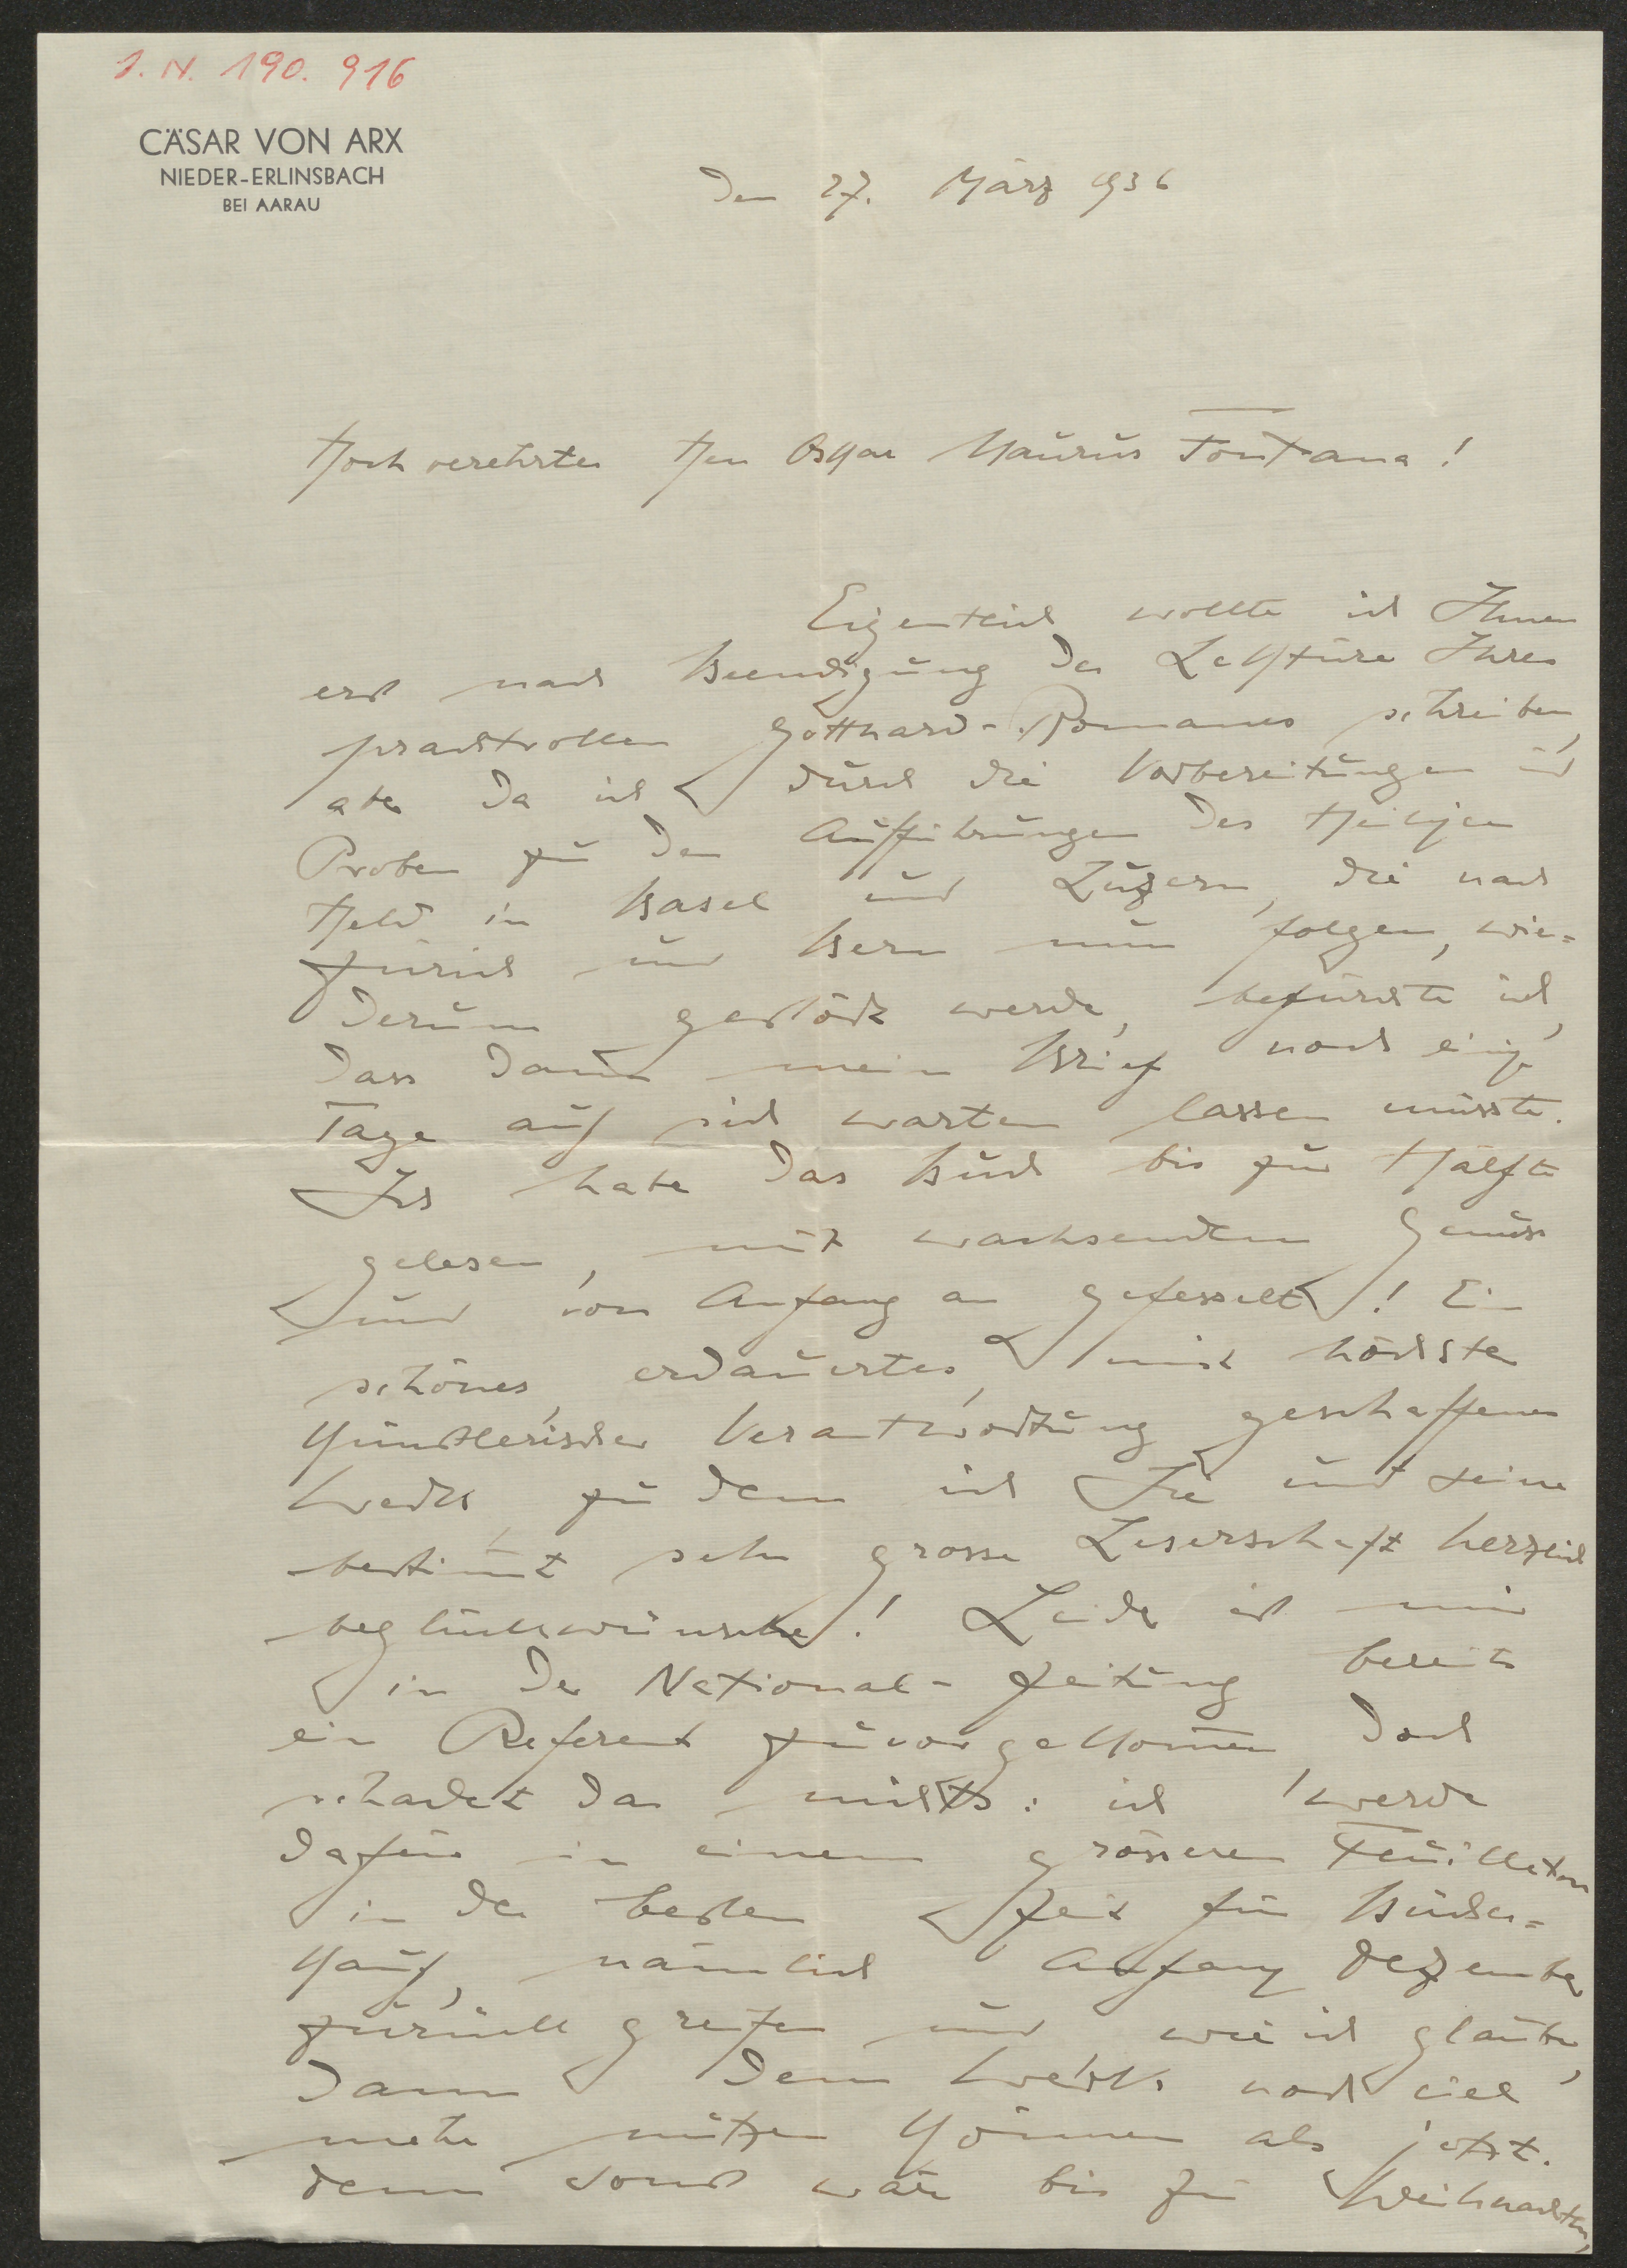 J. N. 190.916
CÄSAR VON ARX
NIEDER-ERLINSBACH
BEI AARAU
Den 27. März 1936
Hochverehrter Herr Oskar Maurus Fontana!
Eigentlich wollte ich Ihnen
erst nach Beendigung der Lektüre Ihres
prachtvollen Gotthard-Romanes schreiben,
aber da ich durch die Vorbereitungen und
Proben zu den Aufführungen des Heiligen
Held in Basel und Luzern, die nach
Zürich und Bern nun folgen, wie=
derum gestört werde, befürchte ich,
dass dann mein Brief noch einige
Tage auf sich warten lassen müsste.
Ich habe das Buch bis zur Hälfte
gelesen, mit wachsendem Genuss
und von Anfang an gefesselt! Ein
schönes, erdauertes, mit höchster
künstlerischer Verantwortung geschaffenes
Werk zu dem ich Sie und seine
bestimmt sehr grosse Leserschaft herzlich
beglückwünsche! Leider ist mir
in der National-Zeitung bereits
ein Referent zuvorgekommen, doch
schadet das nichts: ich werde
dafür in einem grösseren Feuilleton
in der besten Zeit für Bücher=
kauf, nämlich Anfang Dezember
zurück greifen und wie ich glaube,
dann dem Werk noch viel
mehr nützen können als jetzt.
denn sonst wäre bis zu Weihnachten,